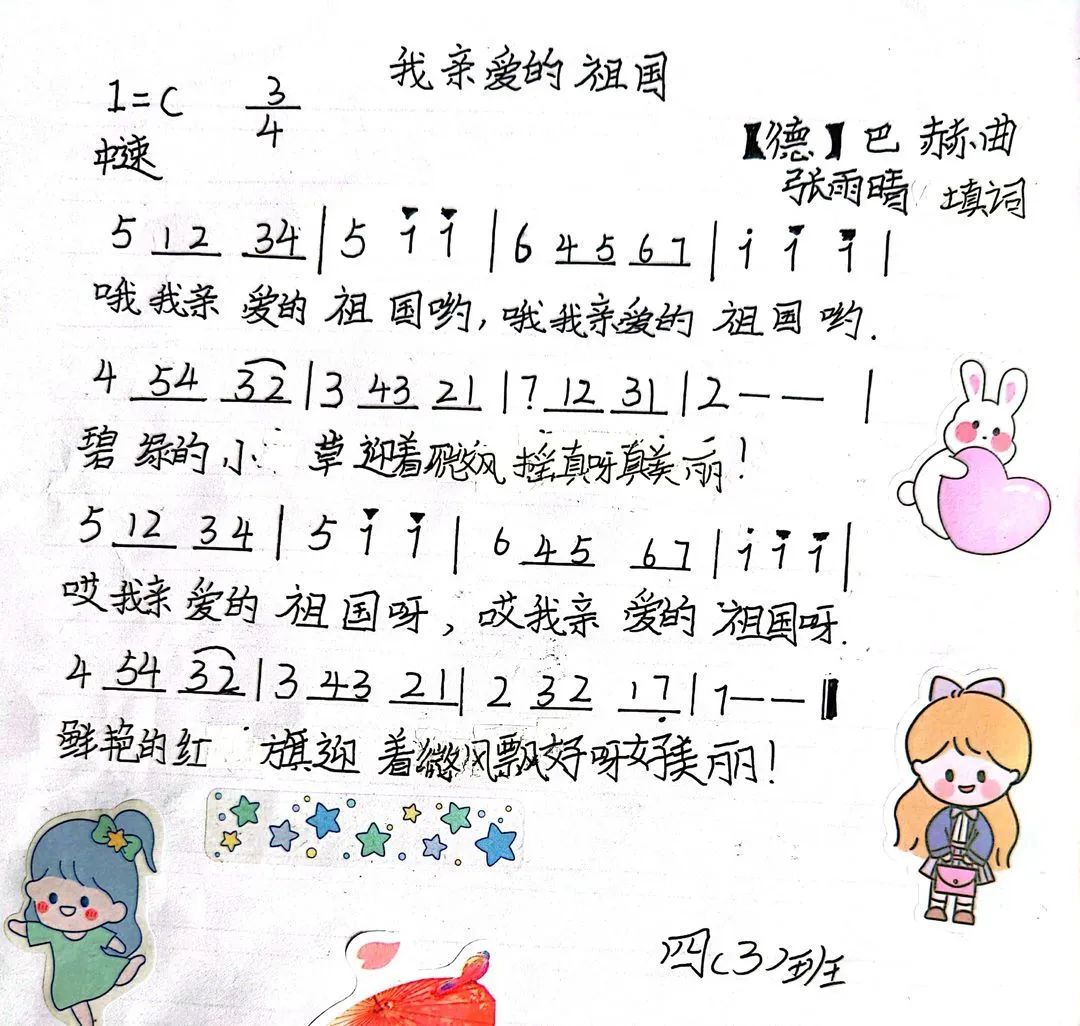 我亲爱的祖国
1=C 3/4
中速
【德】巴赫曲
张雨晴 填词
5 12 34 | 5 i i | 6 45 67 | i i i |
哦我亲爱的祖国哟,哦我亲爱的祖国哟.
4 54 32 | 3 43 21 | 7 12 31 | 2 — — |
碧绿的小草迎着微风摇真呀真美丽!
5 12 34 | 5 i i | 6 45 67 | i i i |
哎我亲爱的祖国呀,哎我亲爱的祖国呀.
4 54 32 | 3 43 21 | 2 32 17 | 1 — — ‖
鲜艳的红旗迎着微风飘好呀好美丽!
四(3)班